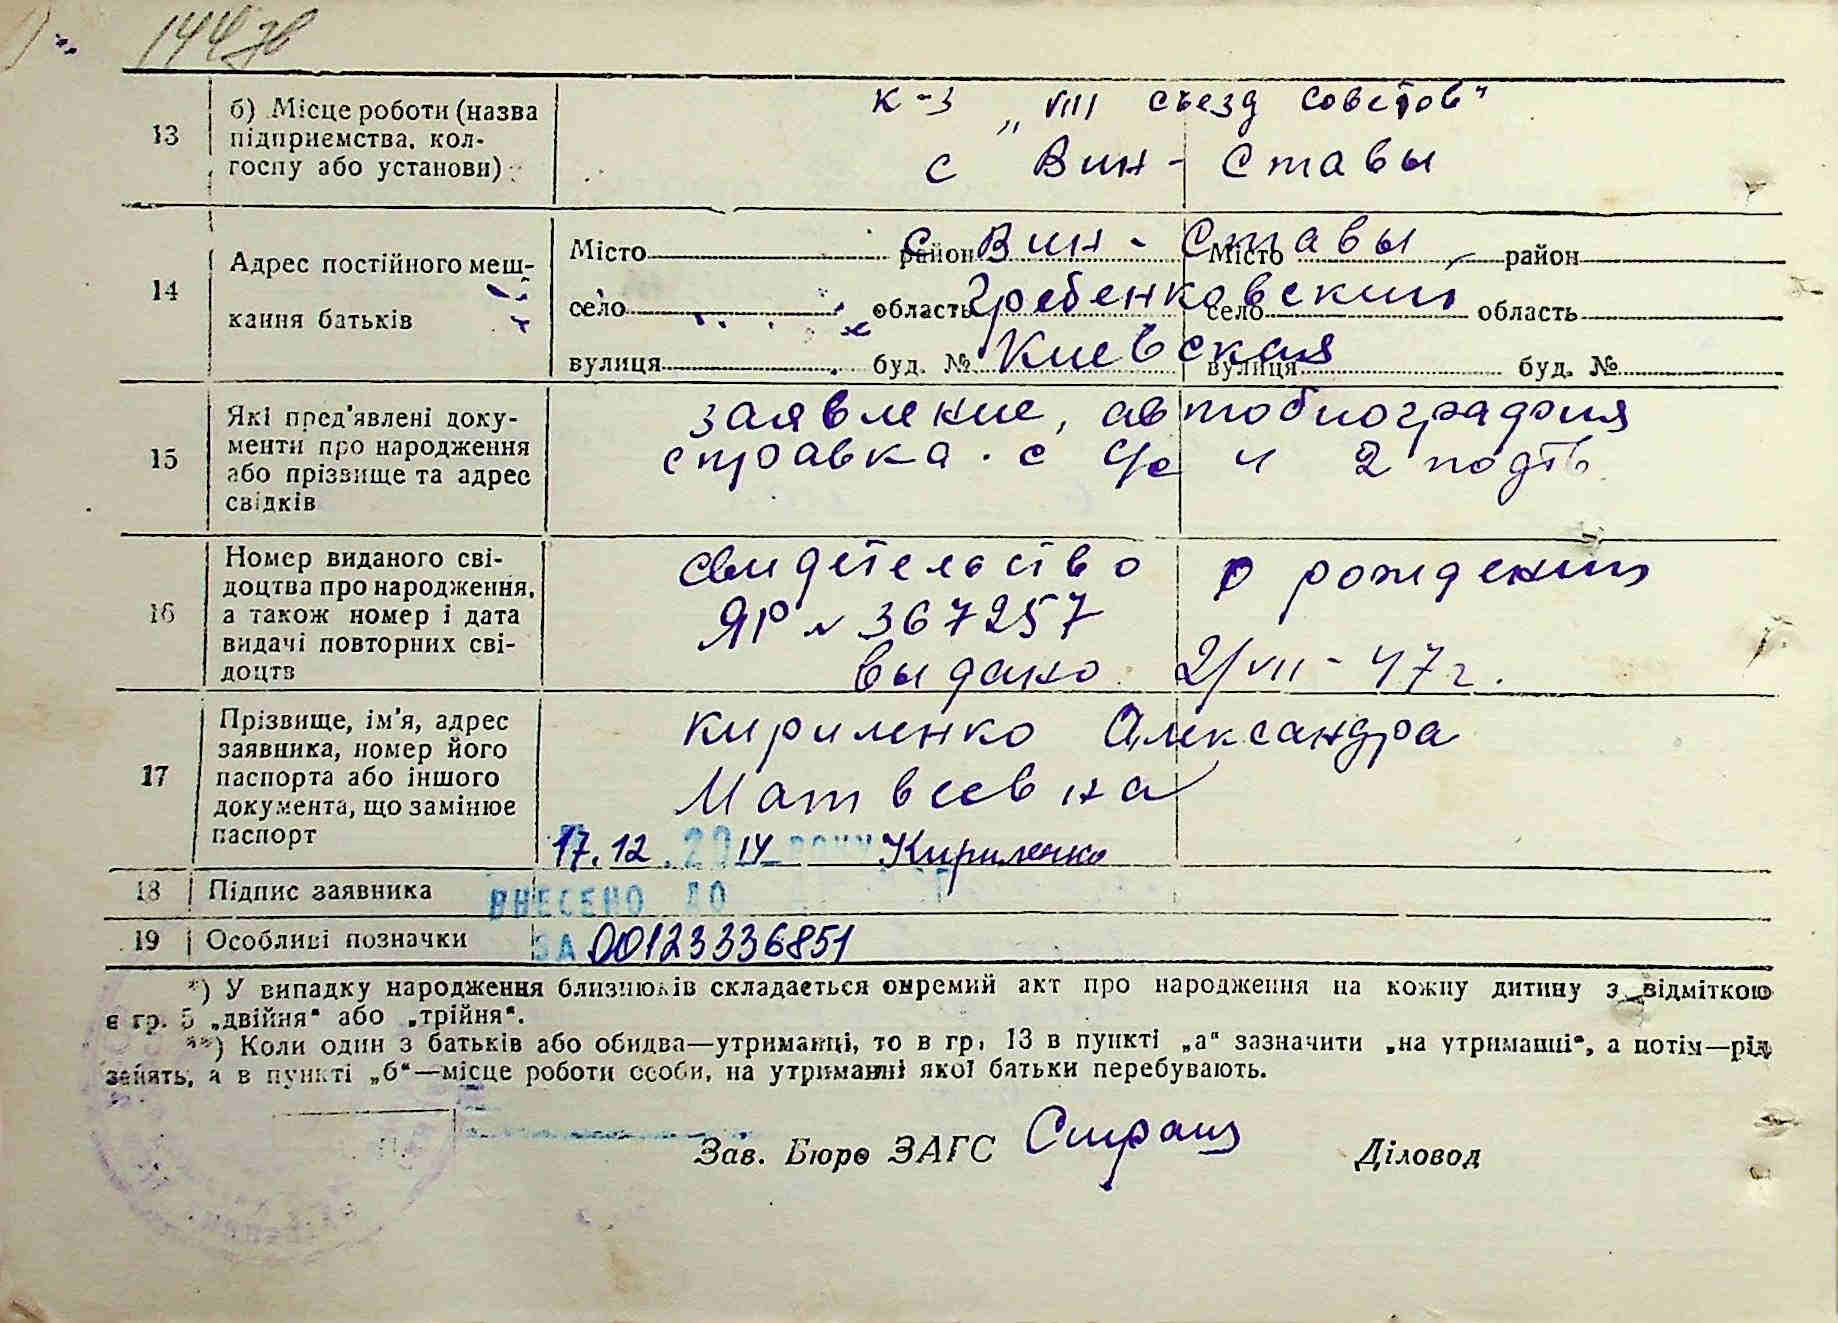 144
13 б) Місце роботи (назва підприємства, кол-госпу або установи)
к-з „VIII съезд Советов"
с Вин-Ставы
14 Адрес постійного меш-
кання батьків
Місто район Місто район
с Вин-Ставы,
село область село область
Гребенковский
вулиця буд. № вулиця буд. №
Киевская
15 Які пред'явлені доку-
менти про народження
або прізвище та адрес
свідків
заявление, автобиография
справка с с/с и 2 подтв
16 Номер виданого сві-
доцтва про народження,
а також номер і дата
видачі повторних сві-
доцтв
свидетельство о рождении
ЯР № 367257
выдано 2/VII-47г.
17 Прізвище, ім'я, адрес
заявника, номер його
паспорта або іншого
документа, що замінює
паспорт
Кириленко Александра
Матвеевна
17.12.2014 року Кириленко
18 Підпис заявника
ВНЕСЕНО ДО
19 Особливі позначки
ЗА 00123336851
*) У випадку народження близнюків складається окремий акт про народження на кожну дитину з відміткою
є гр. 5 „двійня" або „трійня".
**) Коли один з батьків або обидва—утриманці, то в гр. 13 в пункті „а" зазначити „на утриманні", а потім—рід
занять, а в пункті „б"—місце роботи особи, на утриманні якої батьки перебувають.
Зав. Бюро ЗАГС Діловод